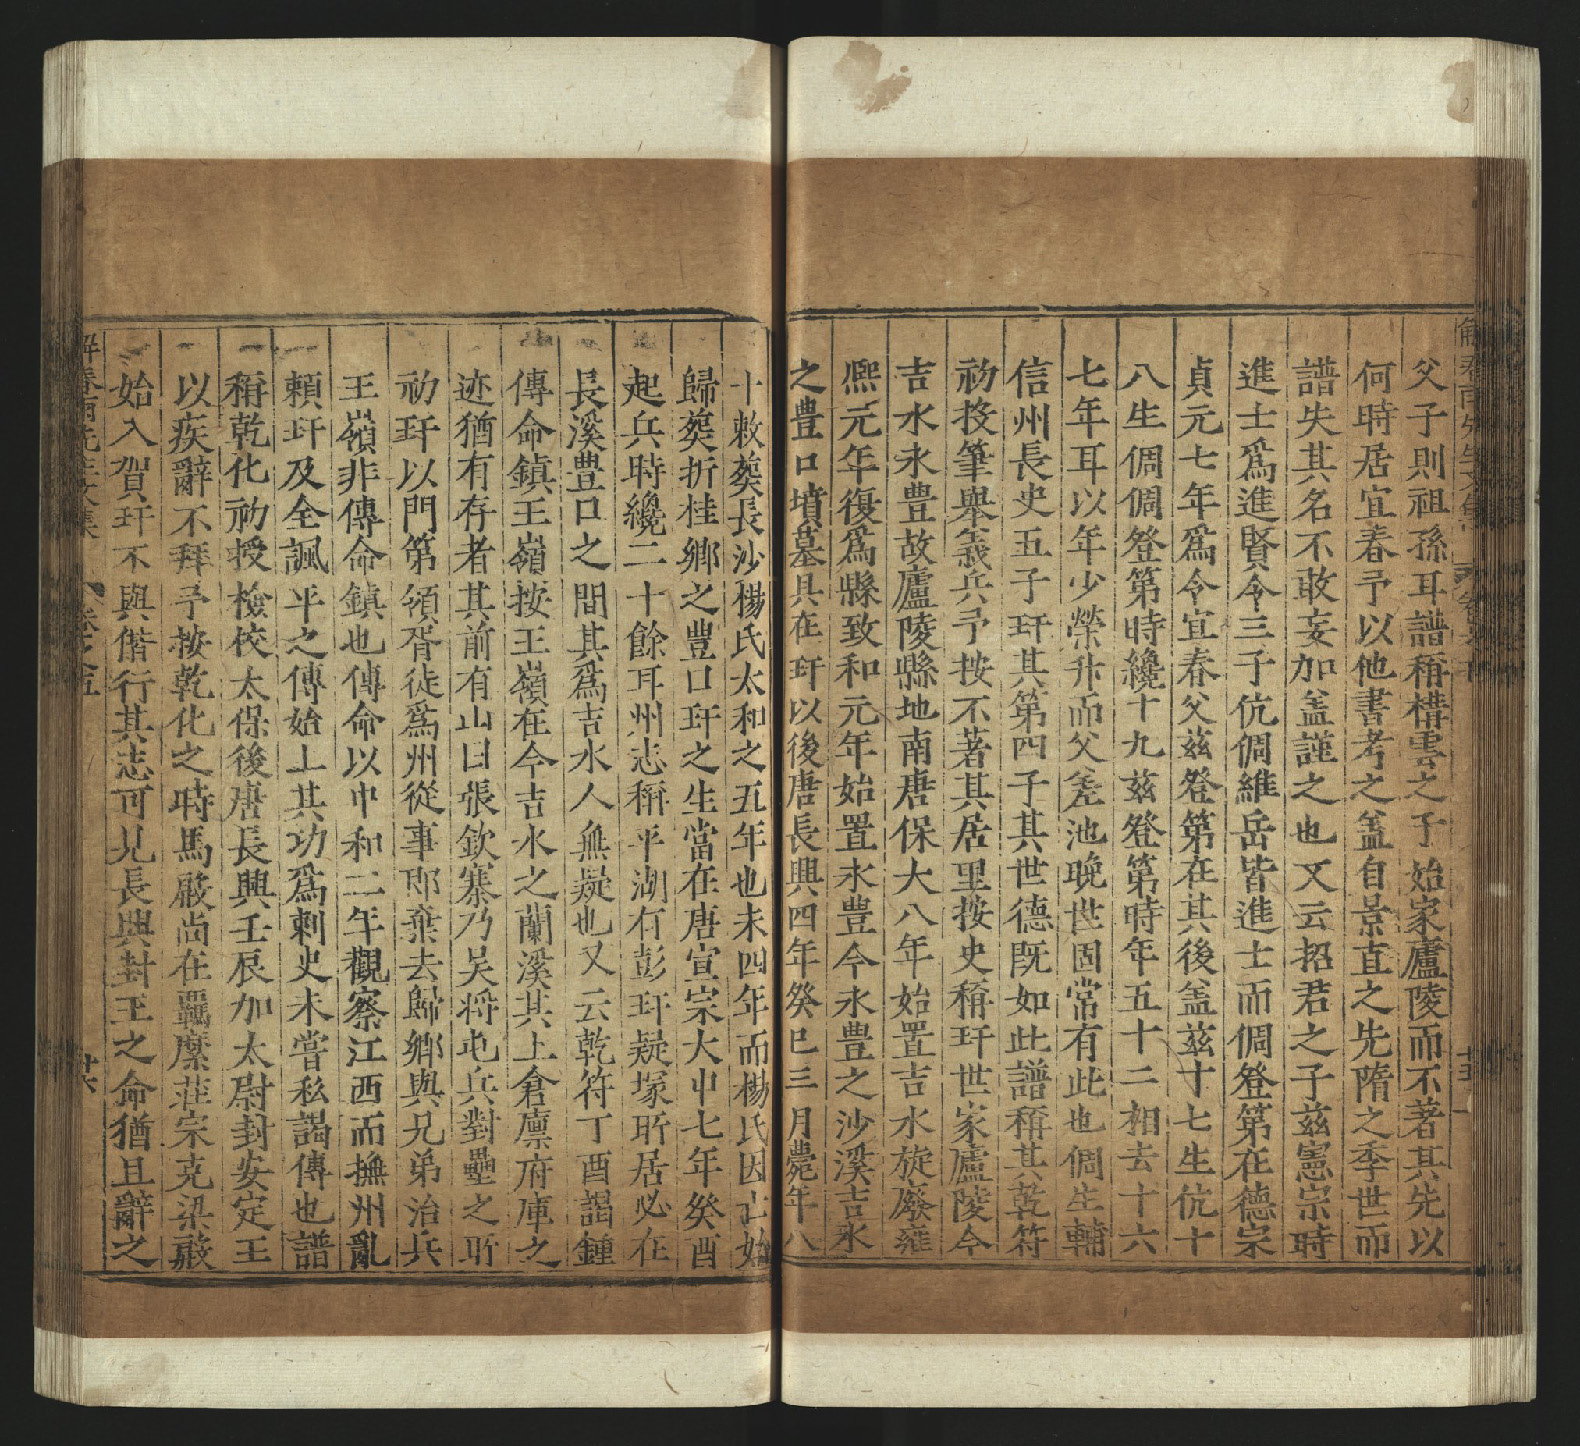 父子則祖孫耳譜稱構雲之子始家廬陵而不著其先以
何時居宜春予以他書考之盖自景直之先隋之季世而
譜失其名不敢妄加盖謹之也又云招君之子兹憲宗時
進士爲進賢令三子伉倜維岳皆進士而倜登第在德宗
貞元七年爲令宜春父兹登第在其後盖兹十七生伉十
八生倜倜登第時纔十九兹登第時年五十二相去十六
七年耳以年少榮升而父差池晚世固常有此也倜生輔
信州長史五子玕其第四子其世德既如此譜稱其乾符
初投筆舉義兵予按不著其居里按史稱玕世家廬陵今
吉水永豊故廬陵縣地南唐保大八年始置吉水旋廢雍
熈元年復爲縣致和元年始置永豊今永豊之沙溪吉水
之豊口墳墓具在玕以後唐長興四年癸巳三月薨年八
十敕葬長沙楊氏太和之五年也未四年而楊氏因亡始
歸葬折桂鄉之豊口玕之生當在唐宣宗大中七年癸酉
起兵時纔二十餘耳州志稱平湖石彭玕疑塚所居必在
長溪豊口之間其爲吉水人無疑也又云乾符丁酉謁鍾
傳命鎮王嶺按王嶺在今吉水之蘭溪其上倉廪府庫之
迹猶有存者其前有山曰張欽寨乃吴將屯兵對壘之所
初玕以門第領胥徒爲州從事郎棄去歸鄉與兄弟治兵
王嶺非傳命鎮也傳命以中和二年觀察江西而撫州亂
頼玕及全諷平之傳始上其功爲刺史未嘗私謁傳也譜
稱乾化初授檢校太保後唐長興壬辰加太尉封安定王
以疾辭不拜予按乾化之時馬殷尚在羈縻莊宗克梁殷
始入賀玕不與偕行其志可見長興封王之命猶且辭之
解春雨先生文集 卷之五 廿六